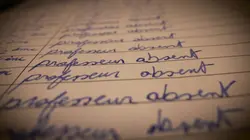 professeur absent
professeur absent
professeur absent
professeur absent
professeur absent
professeur absent